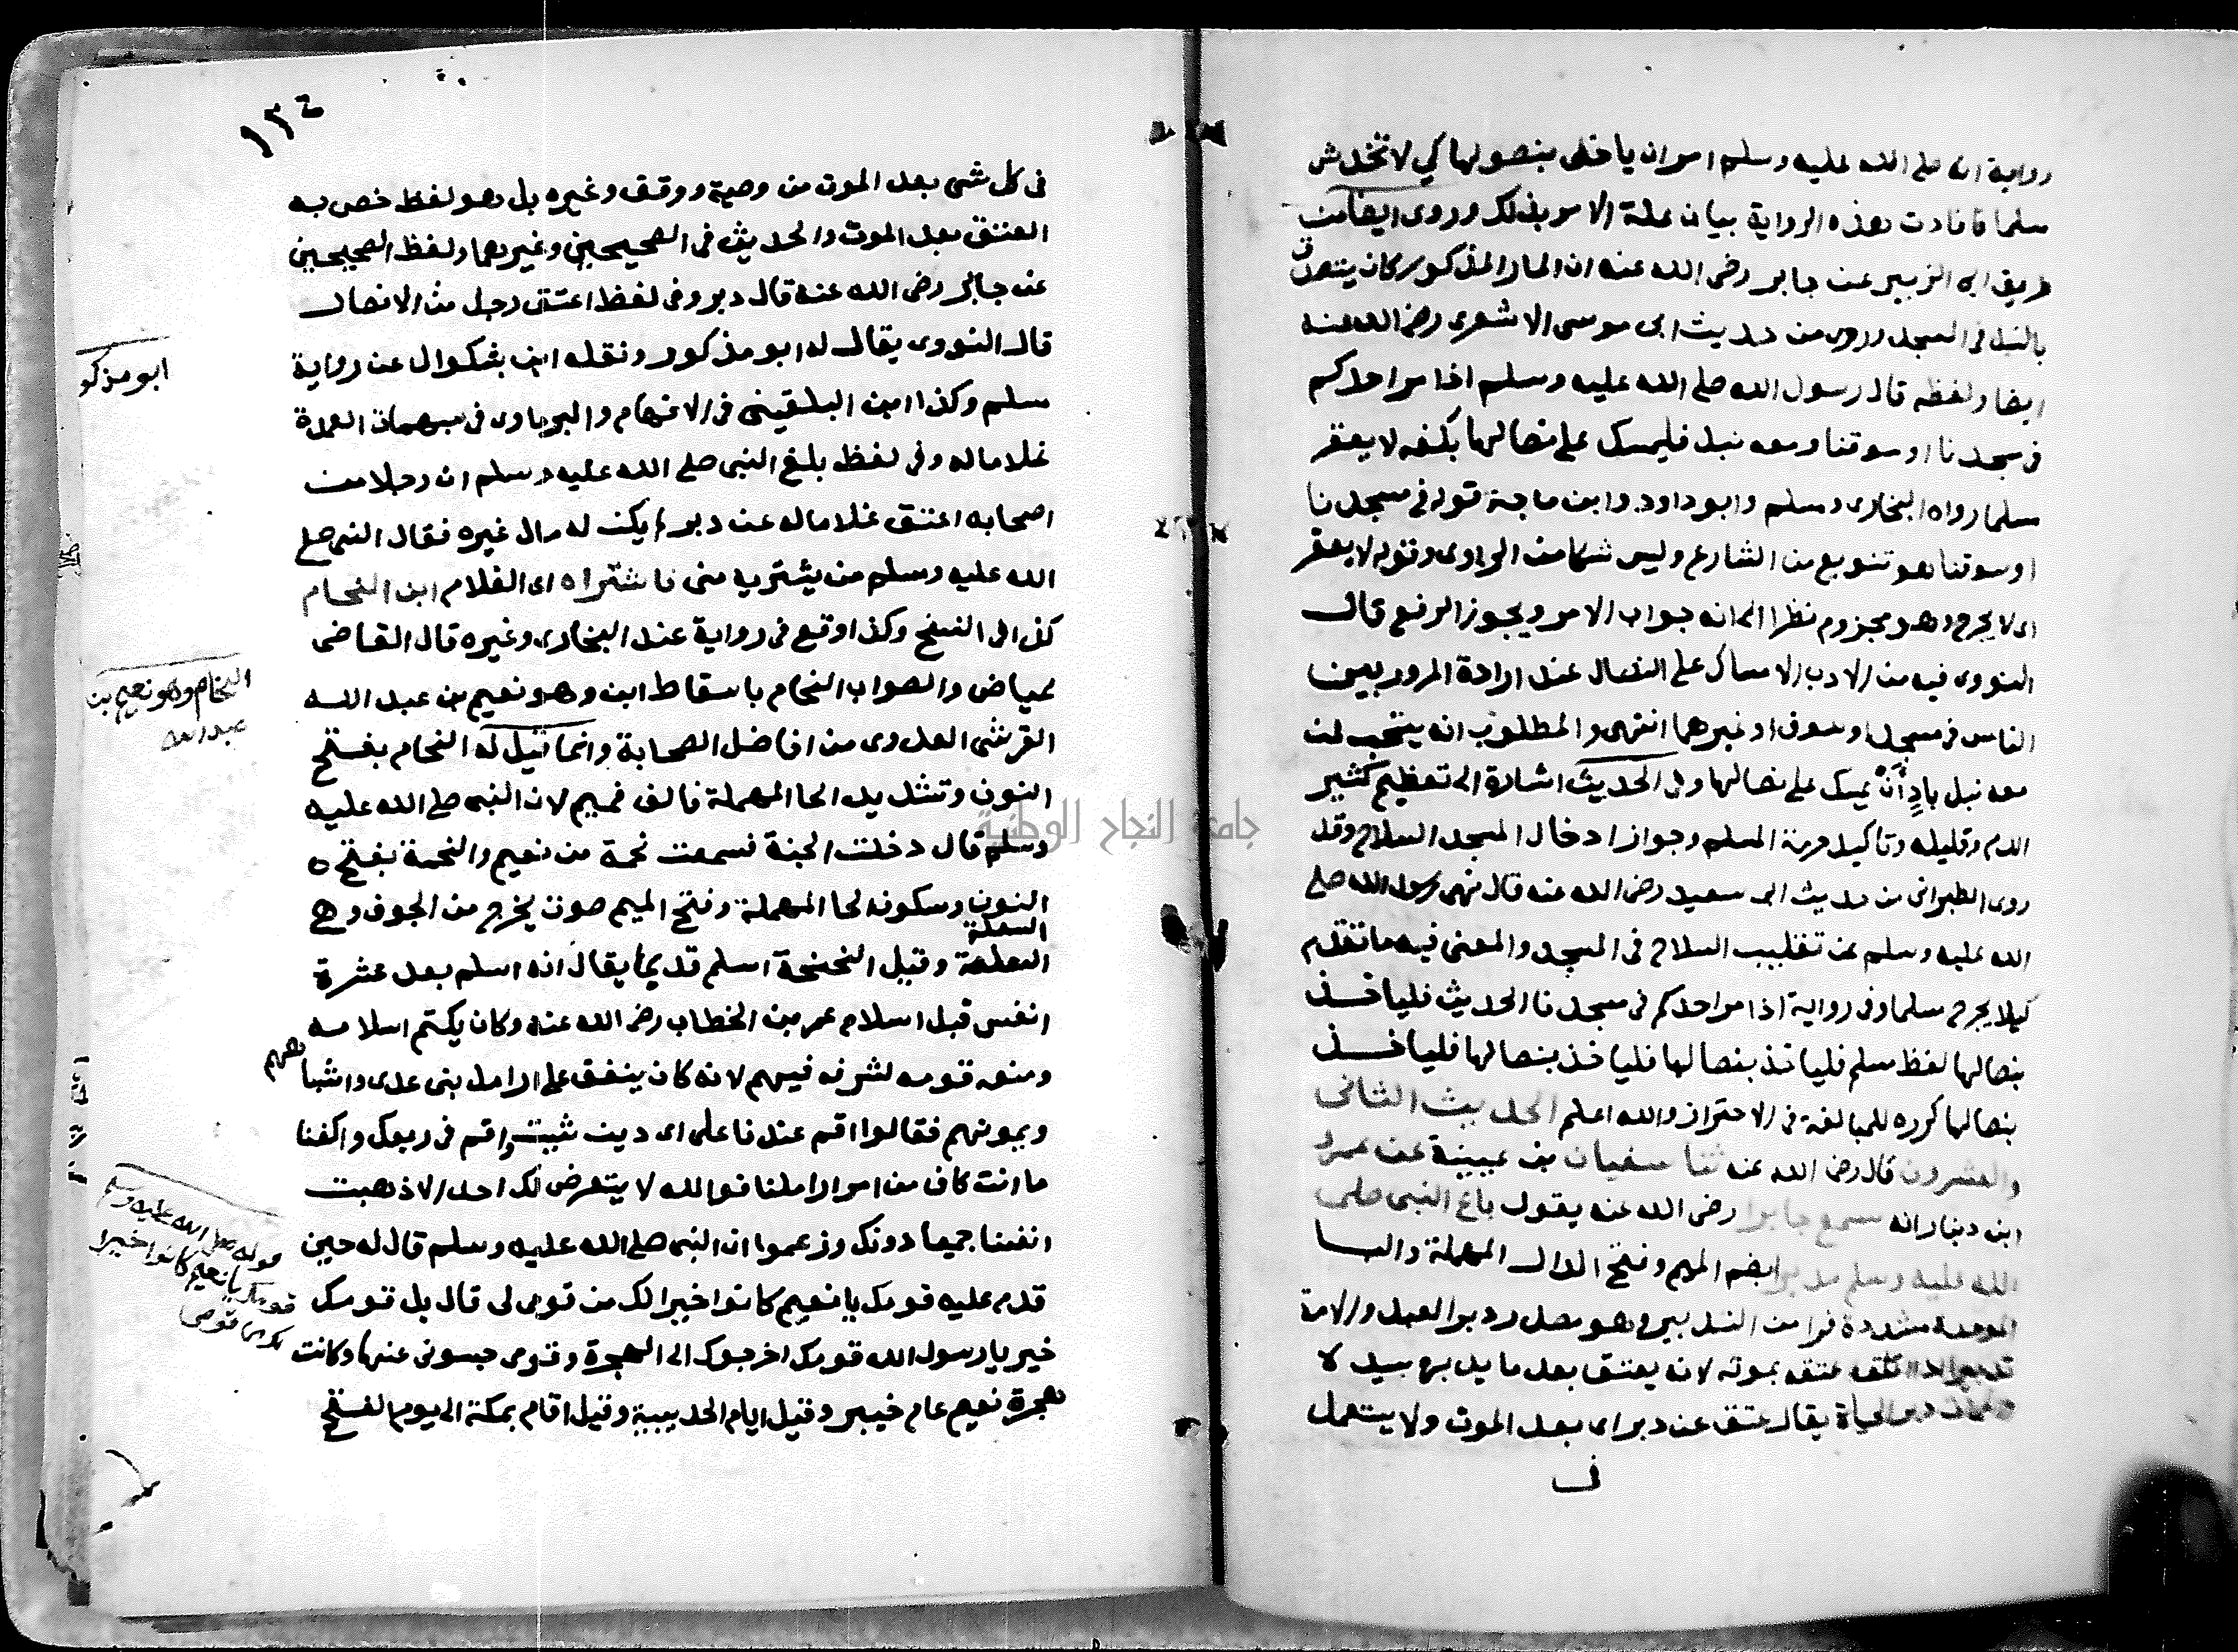 رواية انه صلى الله عليه وسلم امر ان ياخذ بنصولها كي لا تخدش
مسلما فافادت هذه الرواية بيان علة الامر بذلك وروى ايضا من
طريق ابى الزبير عن جابر رضى الله عنه ان المار المذكور كان يتصدق
بالنبل فى المسجد وروى من حديث ابى موسى الاشعرى رضى الله عنه
ايضا ولفظه قال رسول الله صلى الله عليه وسلم اذا مر احدكم
فى مسجدنا او سوقنا ومعه نبل فليمسك على نصالها بكفه لا يعقر
مسلما رواه البخارى ومسلم وابو داود وابن ماجة قوله فى مسجدنا
او سوقنا هو تنويع من الشارع وليس شكا من الراوى وقوله لا يعقر
اى لا يجرح وهو مجزوم نظرا الى انه جواب الامر ويجوز الرفع قال
النووى فيه من الادب الامساك على النصال عند ارادة المرور بين
الناس فى مسجد او سوق او غيرهما انتهى والمطلوب انه يستحب لمن
معه نبل بادٍ أنْ يمسك على نصالها وفى الحديث اشارة الى تعظيم كثير
الدم وقليله وتاكيد حرمة المسلم وجواز ادخال المسجد السلاح وقد
روى الطبرانى من حديث ابى سعيد رضى الله عنه قال نهى رسول الله صلى
الله عليه وسلم عن تقليب السلاح فى المسجد والمعنى فيه ما تقدم
كيلا يجرح مسلما وفى رواية اذا مر احدكم فى مسجدنا الحديث فلياخذ
بنصالها لفظ مسلم فلياخذ بنصالها فلياخذ بنصالها فلياخذ
بنصالها كرره للمبالغة فى الاحتراز والله اعلم الحديث الثانى
والعشرون قال رضى الله عنه ثنا سفيان بن عيينة عن عمرو
ابن دينار انه سمع جابرا رضى الله عنه يقول باع النبى صلى
الله عليه وسلم مدبرا بضم الميم وفتح الدال المهملة والبا
الموحدة مشددة فرا من التدبير وهو مصدر دبر العبد والامة
تدبيرا اذا علق عتقه بموته لانه يعتق بعد ما يدبر سيده
دبر الحياة يقال عتق عن دبر اى بعد الموت ولا يستعمل
فى
١٣٤
فى كل شى بعد الموت من وصية ووقف وغيره بل هو لفظ خص به
العتق بعد الموت والحديث فى الصحيحين وغيرهما ولفظ الصحيحين
عن جابر رضى الله عنه قال دبر وفى لفظ اعتق رجل من الانصار
قال النووى يقال له ابو مذكور ونقله ابن بشكوال عن رواية
مسلم وكذا ابن البلقينى فى الافهام والبرماوى فى مبهمات العمدة
غلاما له وفى لفظ بلغ النبى صلى الله عليه وسلم ان رجلا من
اصحابه اعتق غلاما له عن دبر لم يكن له مال غيره فقال النبى صلى
الله عليه وسلم من يشتريه منى فاشتراه اى الغلام ابن النحام
كذا فى النسخ وكذا وقع فى رواية عند البخارى وغيره قال القاضى
عياض والصواب النحام باسقاط ابن وهو نعيم بن عبد الله
القرشى العدوى من افاضل الصحابة وانما قيل له النحام بفتح
النون وتشديد الحا المهملة فالف فميم لان النبى صلى الله عليه
وسلم قال دخلت الجنة فسمعت نحمة من نعيم والنحمة بفتح
النون وسكون الحا المهملة وفتح الميم صوت يخرج من الجوف وهى
السعلة
السعلة وقيل النحنحة اسلم قديما يقال انه اسلم بعد عشرة
انفس قبل اسلام عمر بن الخطاب رضى الله عنه وكان يكتم اسلامه
ومنعه قومه لشرفه فيهم لانه كان ينفق على ارامل بنى عدى وايتامهم
ويمونهم فقالوا اقم عندنا على اى دين شيت واقم فى ربعك واكفنا
ما انت كاف من امر اراملنا فوالله لا يتعرض لك احد الا ذهبت
انفسنا جميعا دونك وزعموا ان النبى صلى الله عليه وسلم قال له حين
قدم عليه قومك يا نعيم كانوا خيرا لك من قومى لى قال بل قومك
خير يا رسول الله قومك اخرجوك الى الهجرة وقومى حبسونى عنها وكانت
هجرة نعيم عام خيبر وقيل ايام الحديبية وقيل اقام بمكة الى يوم الفتح
ابو مذكو
النحام وهو نعيم بن
عبد الله
قوله صلى الله عليه وسلم
قومك يا نعيم كانوا خيرا
لك من قومى
جامعة النجاح الوطنية